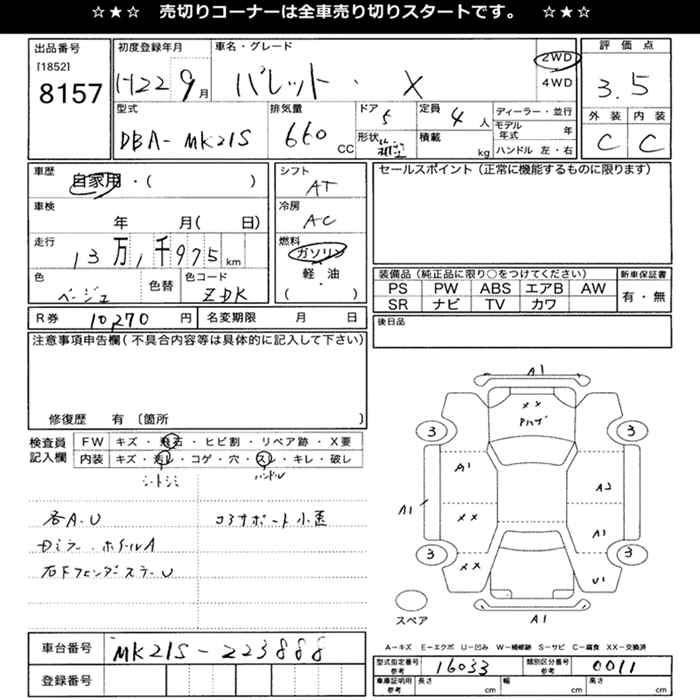 ☆★☆ 売切りコーナーは全車売り切りスタートです。 ☆★☆
出品番号
[1852]
8157
初度登録年月
H22 9月
車名・グレード
パレット・ X
2WD
4WD
評価点
3.5
外装 内装
C C
型式
DBA-MK21S
排気量
660 CC
ドア
5
形状
定員
4人
積載
kg
ディーラー・並行
モデル年式 年
ハンドル 左・右
車歴
自家用・( )
車検
年 月( 日)
走行
13万,1千975km
色
ベージュ
色替
色コード
ZDK
シフト
AT
冷房
AC
燃料
ガソリン
軽油
・
( )
セールスポイント(正常に機能するものに限ります)
装備品(純正品に限り○をつけてください)
PS PW ABS エアB AW
SR ナビ TV カワ
新車保証書
有・無
R券 10,270円
名変期限 月 日
後日品
注意事項申告欄(不具合内容等は具体的に記入して下さい)
修復歴 有〔箇所 〕
検査員
記入欄
FW キズ・飛石・ヒビ割・リペア跡・X要
内装 キズ・汚レ・コゲ・穴・スレ・キレ・破レ
シートシミ ハンドル
各A.U
コアサポート小歪
Dミラー.ホイールA
右Fフェンダーステーリ
A1
XX
3 3
A1 A2
A1
XX A1
3 3
XX U1
A1
スペア
A-キズ E-エクボ U-凹み W-補修跡 S-サビ C-腐食 XX-交換済
車台番号 MK21S-223888
登録番号
型式指定番号 参考 16033
類別区分番号 参考 0011
車庫証明用 参考
長さ cm 幅 cm 高さ cm